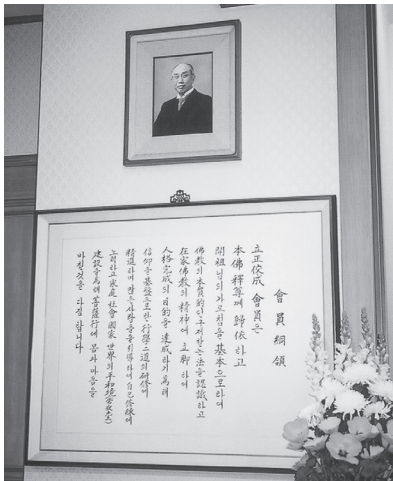 會員綱領
立正佼成會員은
本佛釋尊께 歸依하고
開祖님의 가르침을 基本으로하여
佛敎의 本質的인 구제하는 法을 認識하고
在家佛敎의 精神에 立脚하여
人格完成의 目的을 達成하기 爲해
信仰을 基盤으로한 行學二道의 硏修에
精進하며 많은 사람들을 引導하며 自己修練에
노력하고 家庭 社會 國家 世界의 平和境
建設을 爲해 菩薩行에 몸과 마음을
바칠것을 다짐합니다